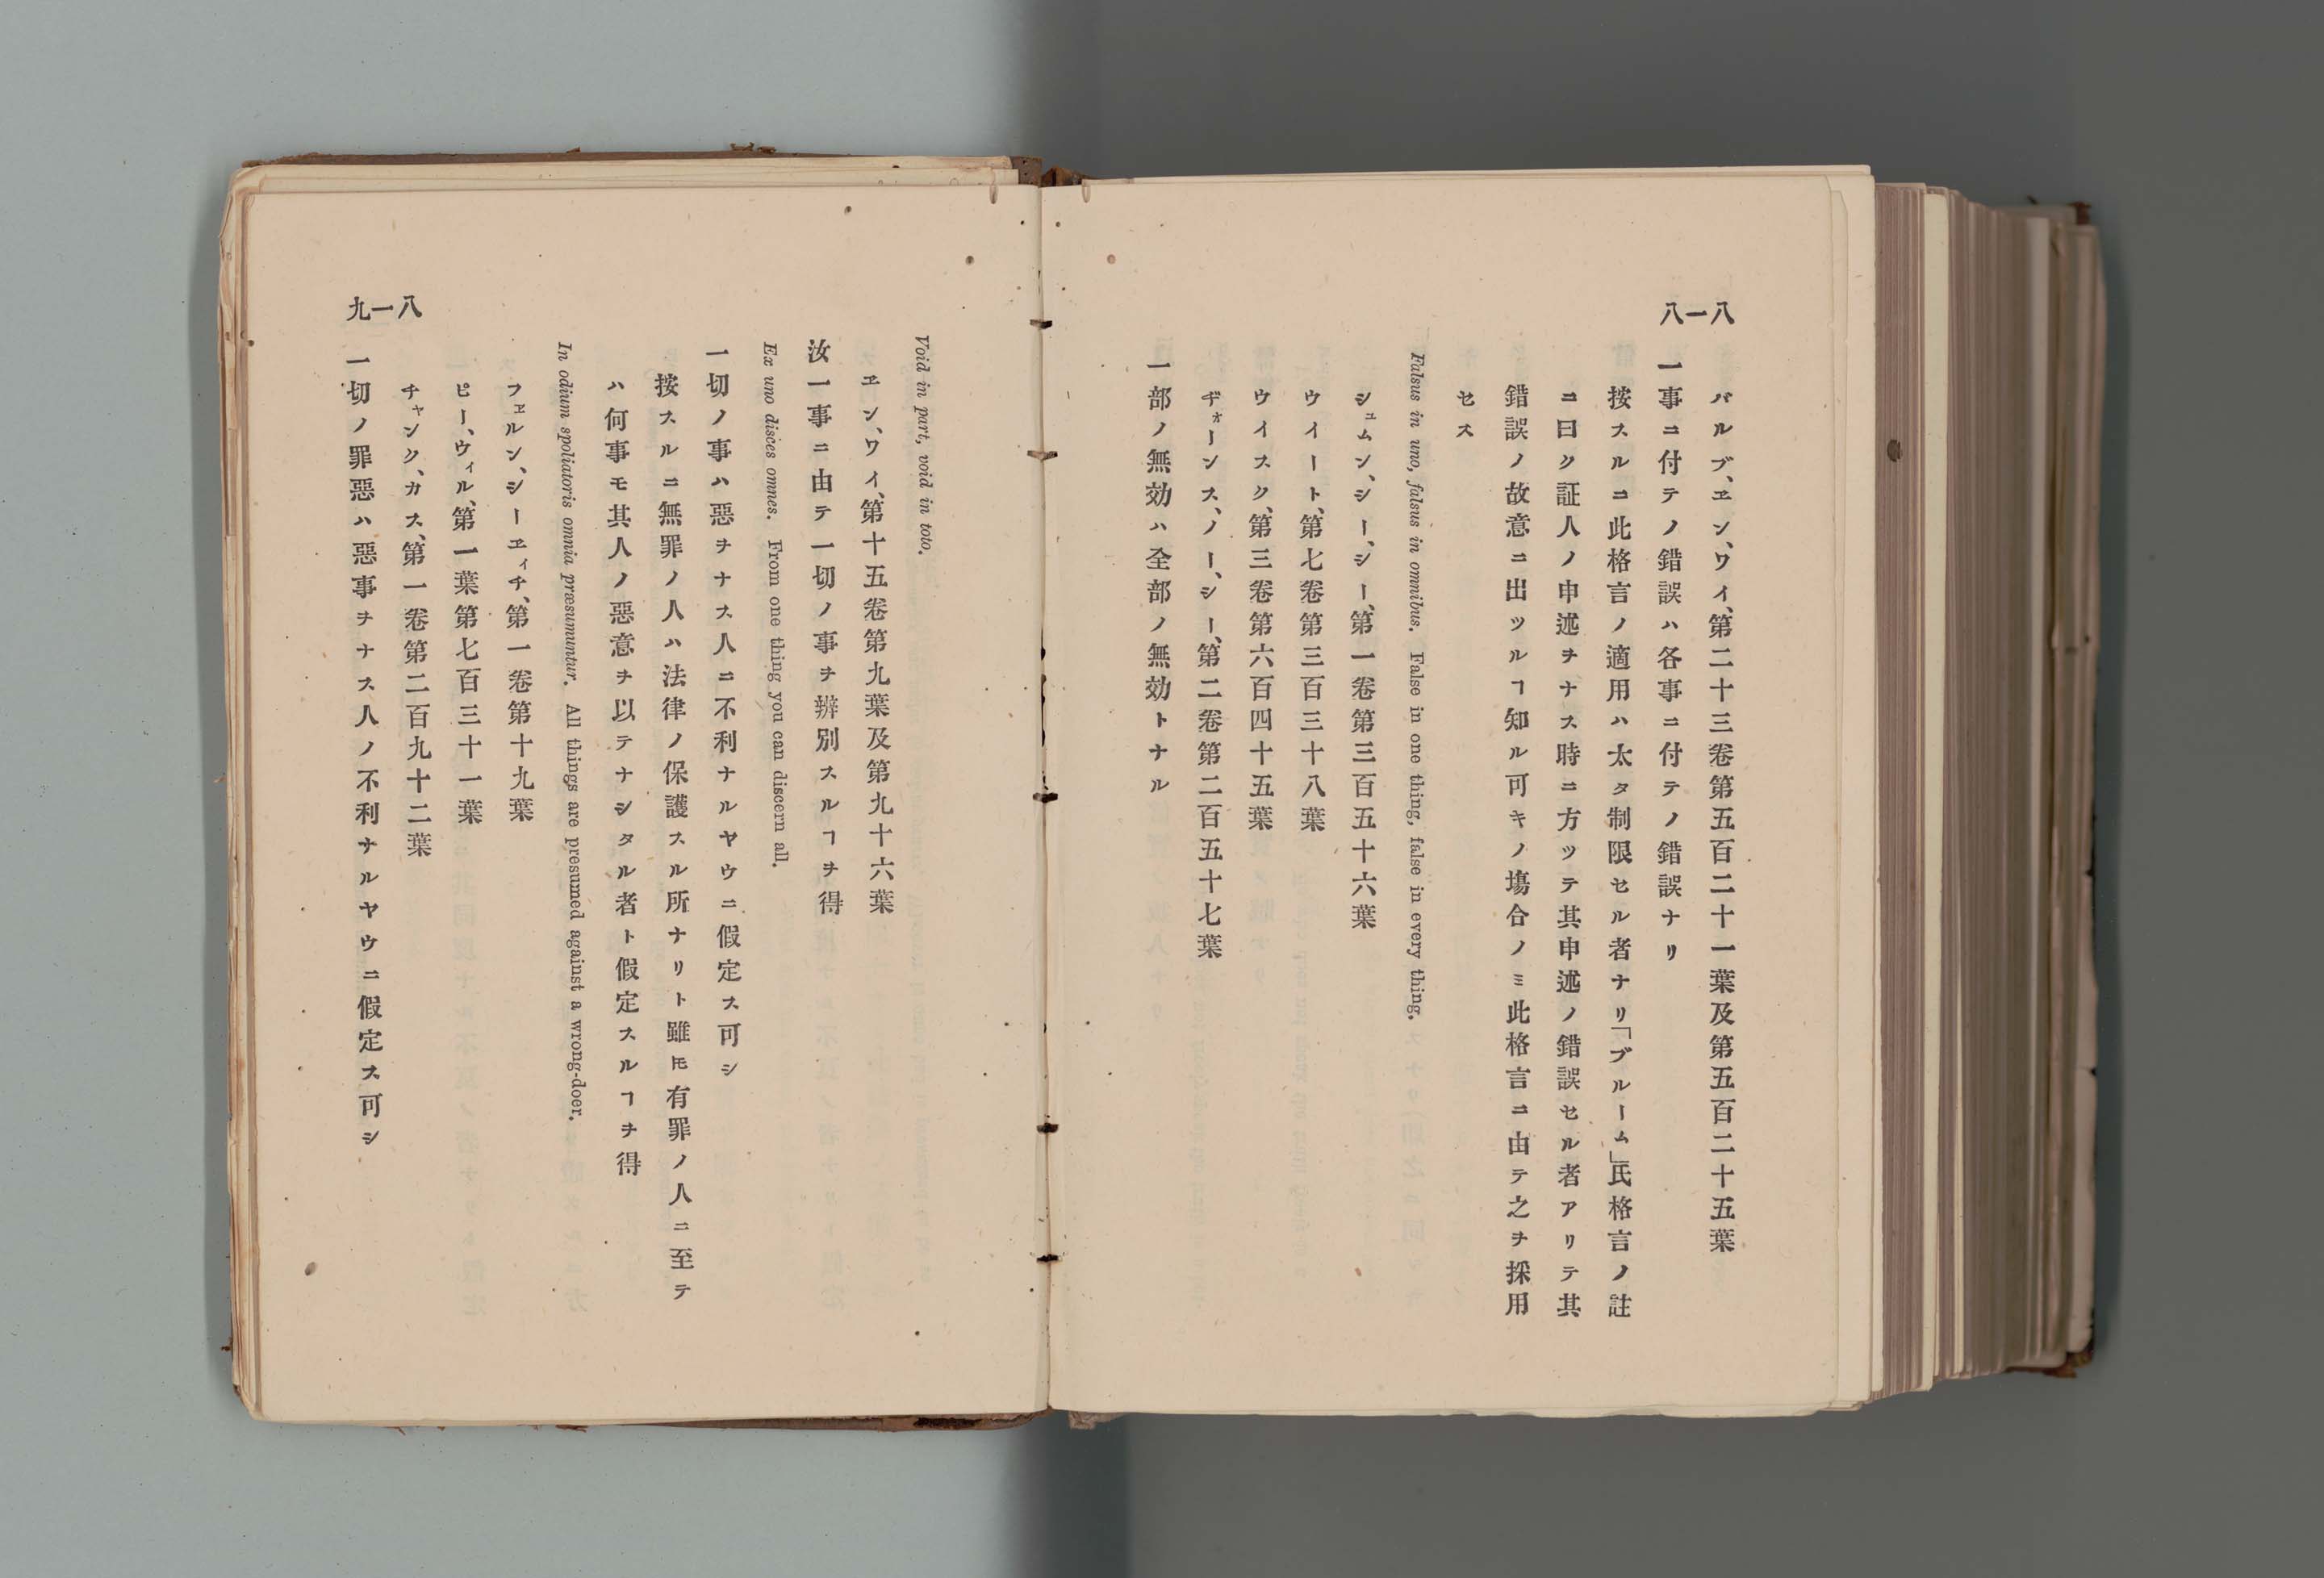 八一八
バルブ、ヱン、ワイ、第二十三卷第五百二十一葉及第五百二十五葉
一事ニ付テノ錯誤ハ各事ニ付テノ錯誤ナリ
按スルニ此格言ノ適用ハ太タ制限セル者ナリ「ブルーム」氏格言ノ註
ニ曰ク証人ノ申述ヲナス時ニ方ツテ其申述ノ錯誤セル者アリテ其
錯誤ノ故意ニ出ツルヿ知ル可キノ塲合ノミ此格言ニ由テ之ヲ採用
セス
Falsus in uno, falsus in omnibus. False in one thing, false in every thing.
シュムン、シー、シー、第一卷第三百五十六葉
ウイート、第七卷第三百三十八葉
ウイスク、第三卷第六百四十五葉
ヂォーンス、ノー、シー、第二卷第二百五十七葉
一部ノ無効ハ全部ノ無効トナル
Void in part, void in toto.
ヱン、ワイ、第十五卷第九葉及第九十六葉
汝一事ニ由テ一切ノ事ヲ辨別スルヿヲ得
Ex uno disces omnes. From one thing you can discern all.
一切ノ事ハ惡ヲナス人ニ不利ナルヤウニ假定ス可シ
按スルニ無罪ノ人ハ法律ノ保護スル所ナリト雖𪜈有罪ノ人ニ至テ
ハ何事モ其人ノ惡意ヲ以テナシタル者ト假定スルヿヲ得
In odium spoliatoris omnia præsumuntur. All things are presumed against a wrong-doer.
フェルン、シーヱィチ、第一卷第十九葉
ピー、ウィル、第一葉第七百三十一葉
チャンク、カス、第一卷第二百九十二葉
八一九
一切ノ罪惡ハ惡事ヲナス人ノ不利ナルヤウニ假定ス可シ